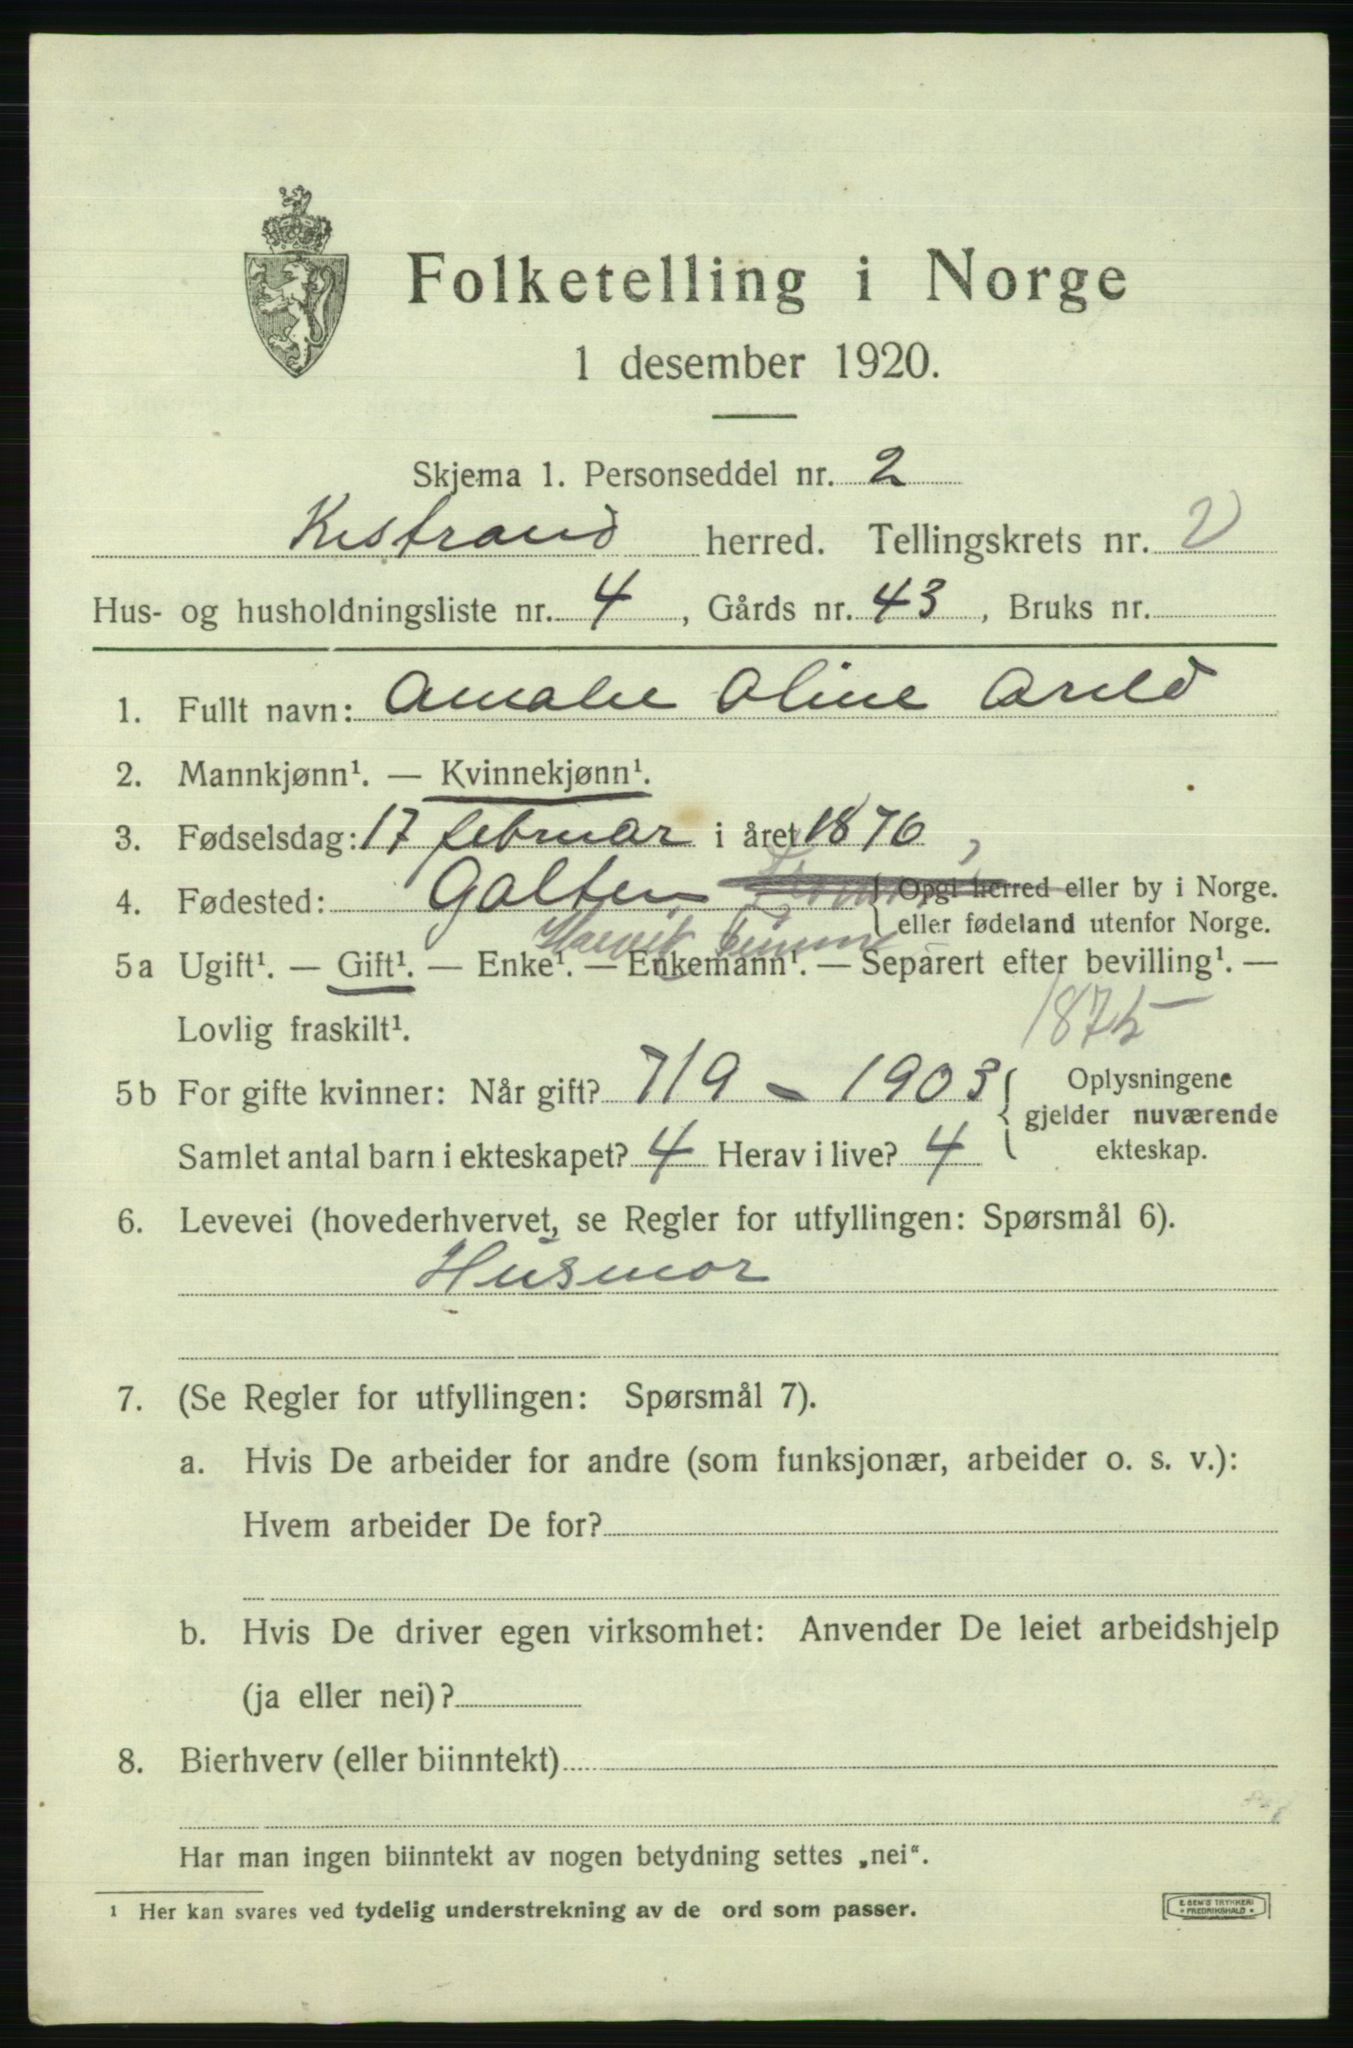 Folketelling i Norge
1 desember 1920.
Skjema 1. Personseddel nr. 2
Kistrand herred. Tellingskrets nr. 2
Hus- og husholdningsliste nr. 4, Gårds nr. 43, Bruks nr.
1. Fullt navn: Amalie Oline Arild
2. Mannkjønn¹. — Kvinnekjønn¹.
3. Fødselsdag: 17 februar i året 1876
4. Fødested: Galten { Opgi herred eller by i Norge.
eller fødeland utenfor Norge.
5a Ugift¹. — Gift¹. — Enke¹. — Enkemann¹. — Separert efter bevilling¹. —
Lovlig fraskilt¹.
1875
5b For gifte kvinner: Når gift? 7/9 - 1903 { Oplysningene
gjelder nuværende
Samlet antal barn i ekteskapet? 4 Herav i live? 4 ekteskap.
6. Levevei (hovederhvervet, se Regler for utfyllingen: Spørsmål 6).
Husmor
7. (Se Regler for utfyllingen: Spørsmål 7).
a. Hvis De arbeider for andre (som funksjonær, arbeider o. s. v.):
Hvem arbeider De for?
b. Hvis De driver egen virksomhet: Anvender De leiet arbeidshjelp
(ja eller nei)?
8. Bierhverv (eller biinntekt)
Har man ingen biinntekt av nogen betydning settes „nei“.
¹ Her kan svares ved tydelig understrekning av de ord som passer.
E. SEM'S TRYKKERI
FREDRIKSHALD